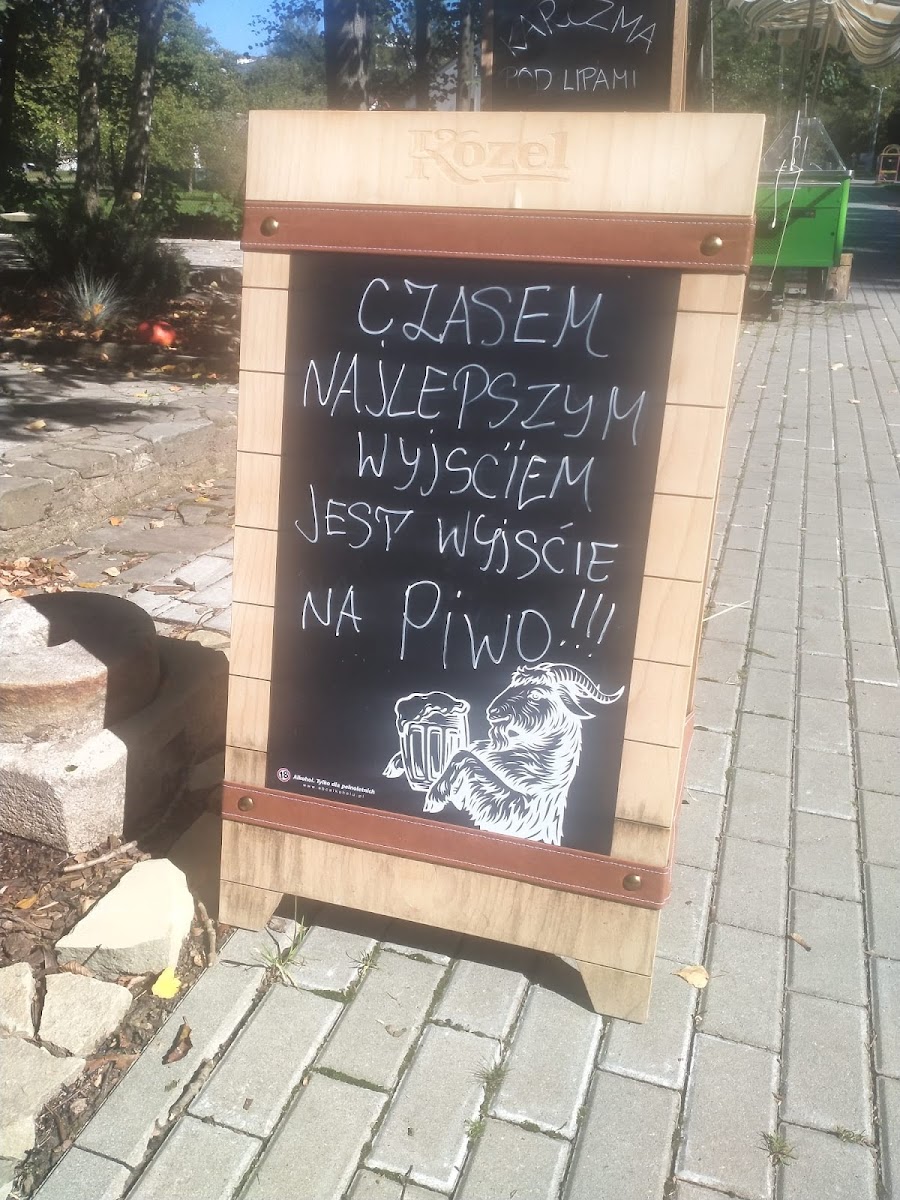 KARIZMA
POD LIPAMI
Kozel
CZASEM
NAJLEPSZYM
WYJŚCIEM
JEST WYJŚCIE
NA PIWO!!!
18 Alkohol. Tylko dla pełnoletnich
www.abcalkoholu.pl